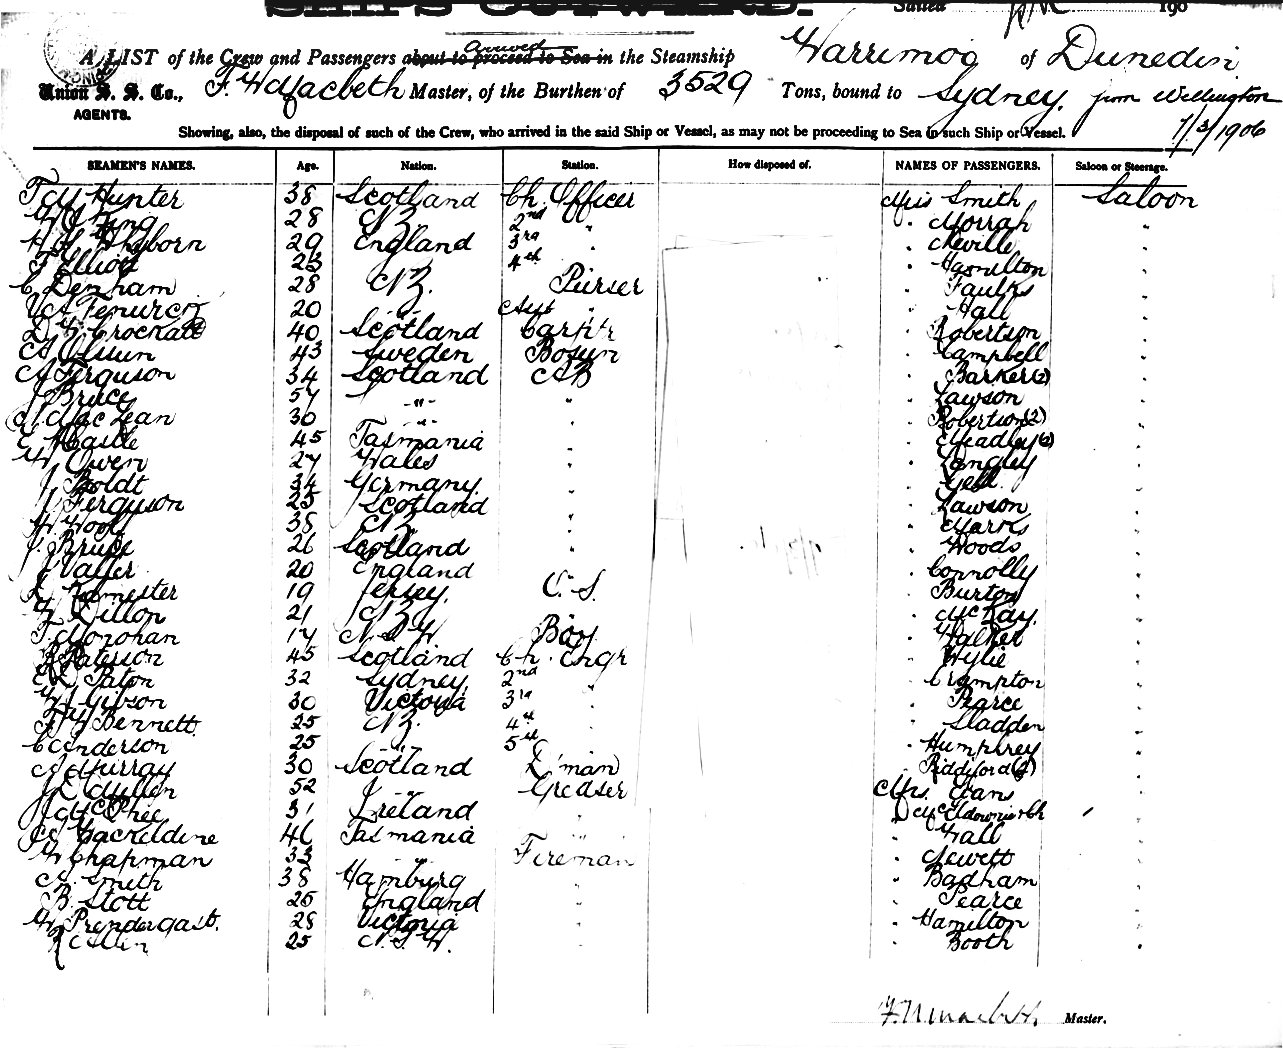 SHIPS OUTWARD.
Sailed 190
A LIST of the Crew and Passengers about to proceed to Sea in arrived the Steamship Warrimoo of Dunedin
Union S. S. Co., F. W. Macbeth Master, of the Burthen of 3529 Tons, bound to Sydney, from Wellington
AGENTS.
Showing, also, the disposal of such of the Crew, who arrived in the said Ship or Vessel, as may not be proceeding to Sea in such Ship or Vessel. 7/3/1906
SEAMEN'S NAMES. Age. Nation. Station. How disposed of. NAMES OF PASSENGERS. Saloon or Steerage.
Hunter 38 Scotland Ch. Officer Miss Smith Saloon
King 28 NZ 2nd " " Morrah "
29 England 3rd " Neville "
Elliot 4th " Hamilton "
C Denham 28 NZ. Purser " Faulks "
20 " Asst " " Hall "
Crockatt 40 Scotland Carptr " Robertson "
43 Sweden Bosun " Campbell "
A Ferguson 34 Scotland AB " Barker (2) "
J Bruce 57 " " " Lawson "
MacLean 30 " " " Robertson (2) "
E Hasle 45 Tasmania " " Headley (2) "
W Owen 27 Wales " " Langley "
J Boldt 34 Germany " " Gell "
J Ferguson 25 Scotland " " Lawson "
W Wool 38 NZ " " Marks "
J. Bruce 26 Scotland " " Woods "
J Valler 20 England " Connolly "
19 Jersey. O. S. " Burton "
W Dillon 21 NZ " " McKay. "
T. Monohan 17 N S W Boy " Walker "
Paterson 45 Scotland Ch. Engr " Wylie "
Paton 32 Sydney 2nd " " Crampton "
Gibson 30 Victoria 3rd " " Pearce "
Bennett 25 NZ. 4th " " Sladden "
C Anderson 25 " 5th " " Humphrey "
A Murray 30 Scotland D'man " Riddiford (2) "
Cullen 52 " Greaser Mrs. Evans "
J McPhee 31 Ireland " " "
Gackeldine 46 Tasmania " " Wall "
W Chapman 33 " Fireman " Newett "
A. Smith 38 Hamburg " " Badham "
B. Stott 25 England " " Pearce "
W Prendergast. 28 Victoria " " Hamilton "
R Allen 25 N. S. W. " " Booth "
F. W. Macbeth Master.